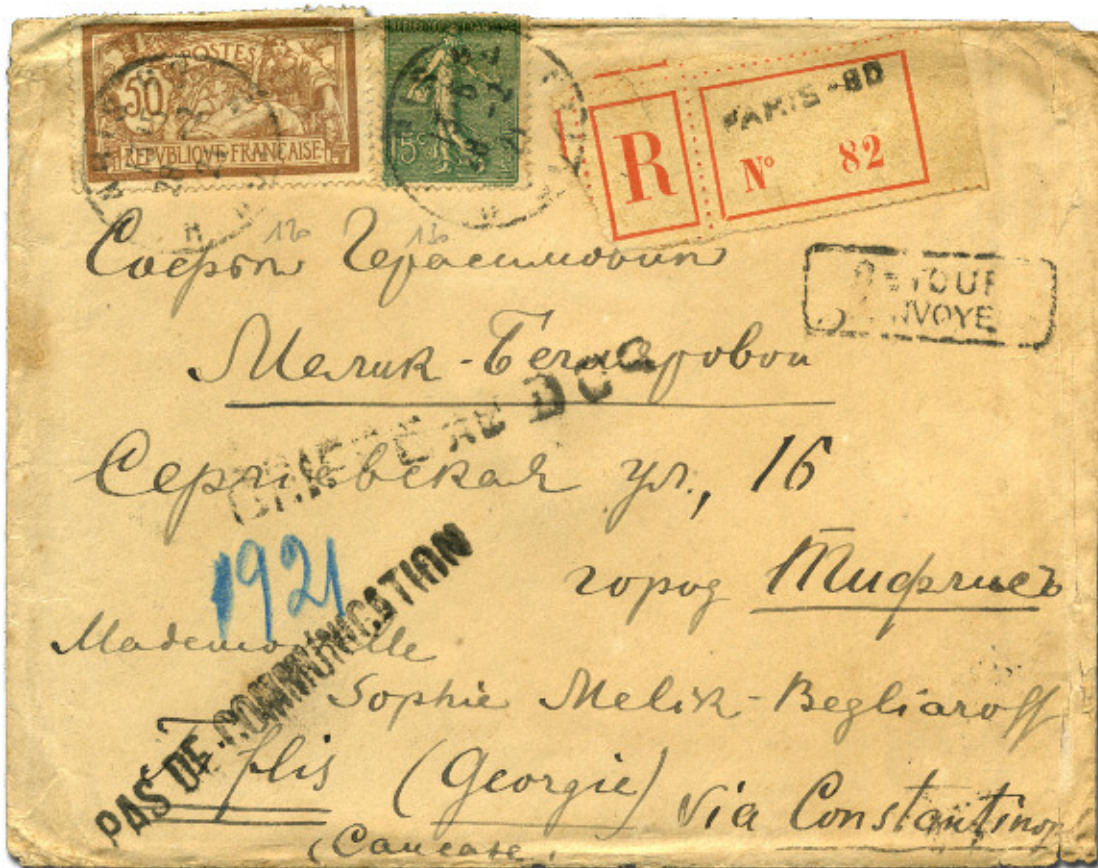 POSTES
50
REPVBLIQVE FRANÇAISE
15c
PARIS-80
R
Nº 82
RETOUR
ENVOYE
Софьи Герасимовии
Мелик-Бегляровои
Сергiевская ул., 16
1921
город Тифлисъ
PAS DE COMMUNICATION
Mademoiselle
Sophie Melik-Begliaroff
Tiflis (Georgie) via Constantinop
(Caucase)